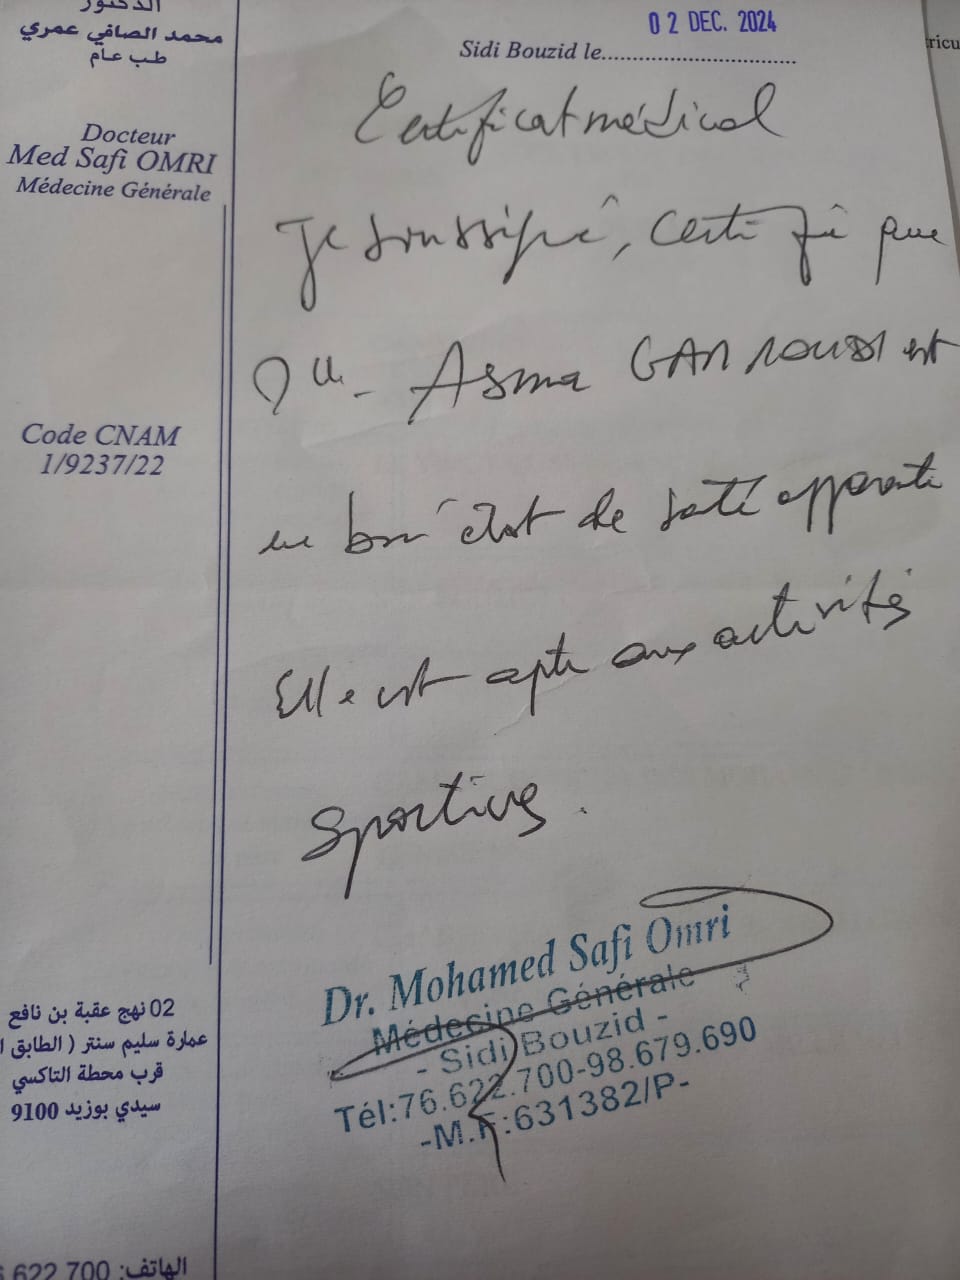 الدكتور
محمد الصافي عمري
طب عام
Docteur
Med Safi OMRI
Médecine Générale
Code CNAM
1/9237/22
02 نهج عقبة بن نافع
عمارة سليم سنتر ( الطابق
قرب محطة التاكسي
سيدي بوزيد 9100
الهاتف: 622 700
02 DEC. 2024
Sidi Bouzid le
Certificat médical
Je soussigné, certifie que
Mlle Asma est
en bon état de santé apparente
Elle est apte aux activités
Sportives.
Dr. Mohamed Safi Omri
Médecine Générale
- Sidi Bouzid -
Tél:76.622.700-98.679.690
-M.F:631382/P-
ricu